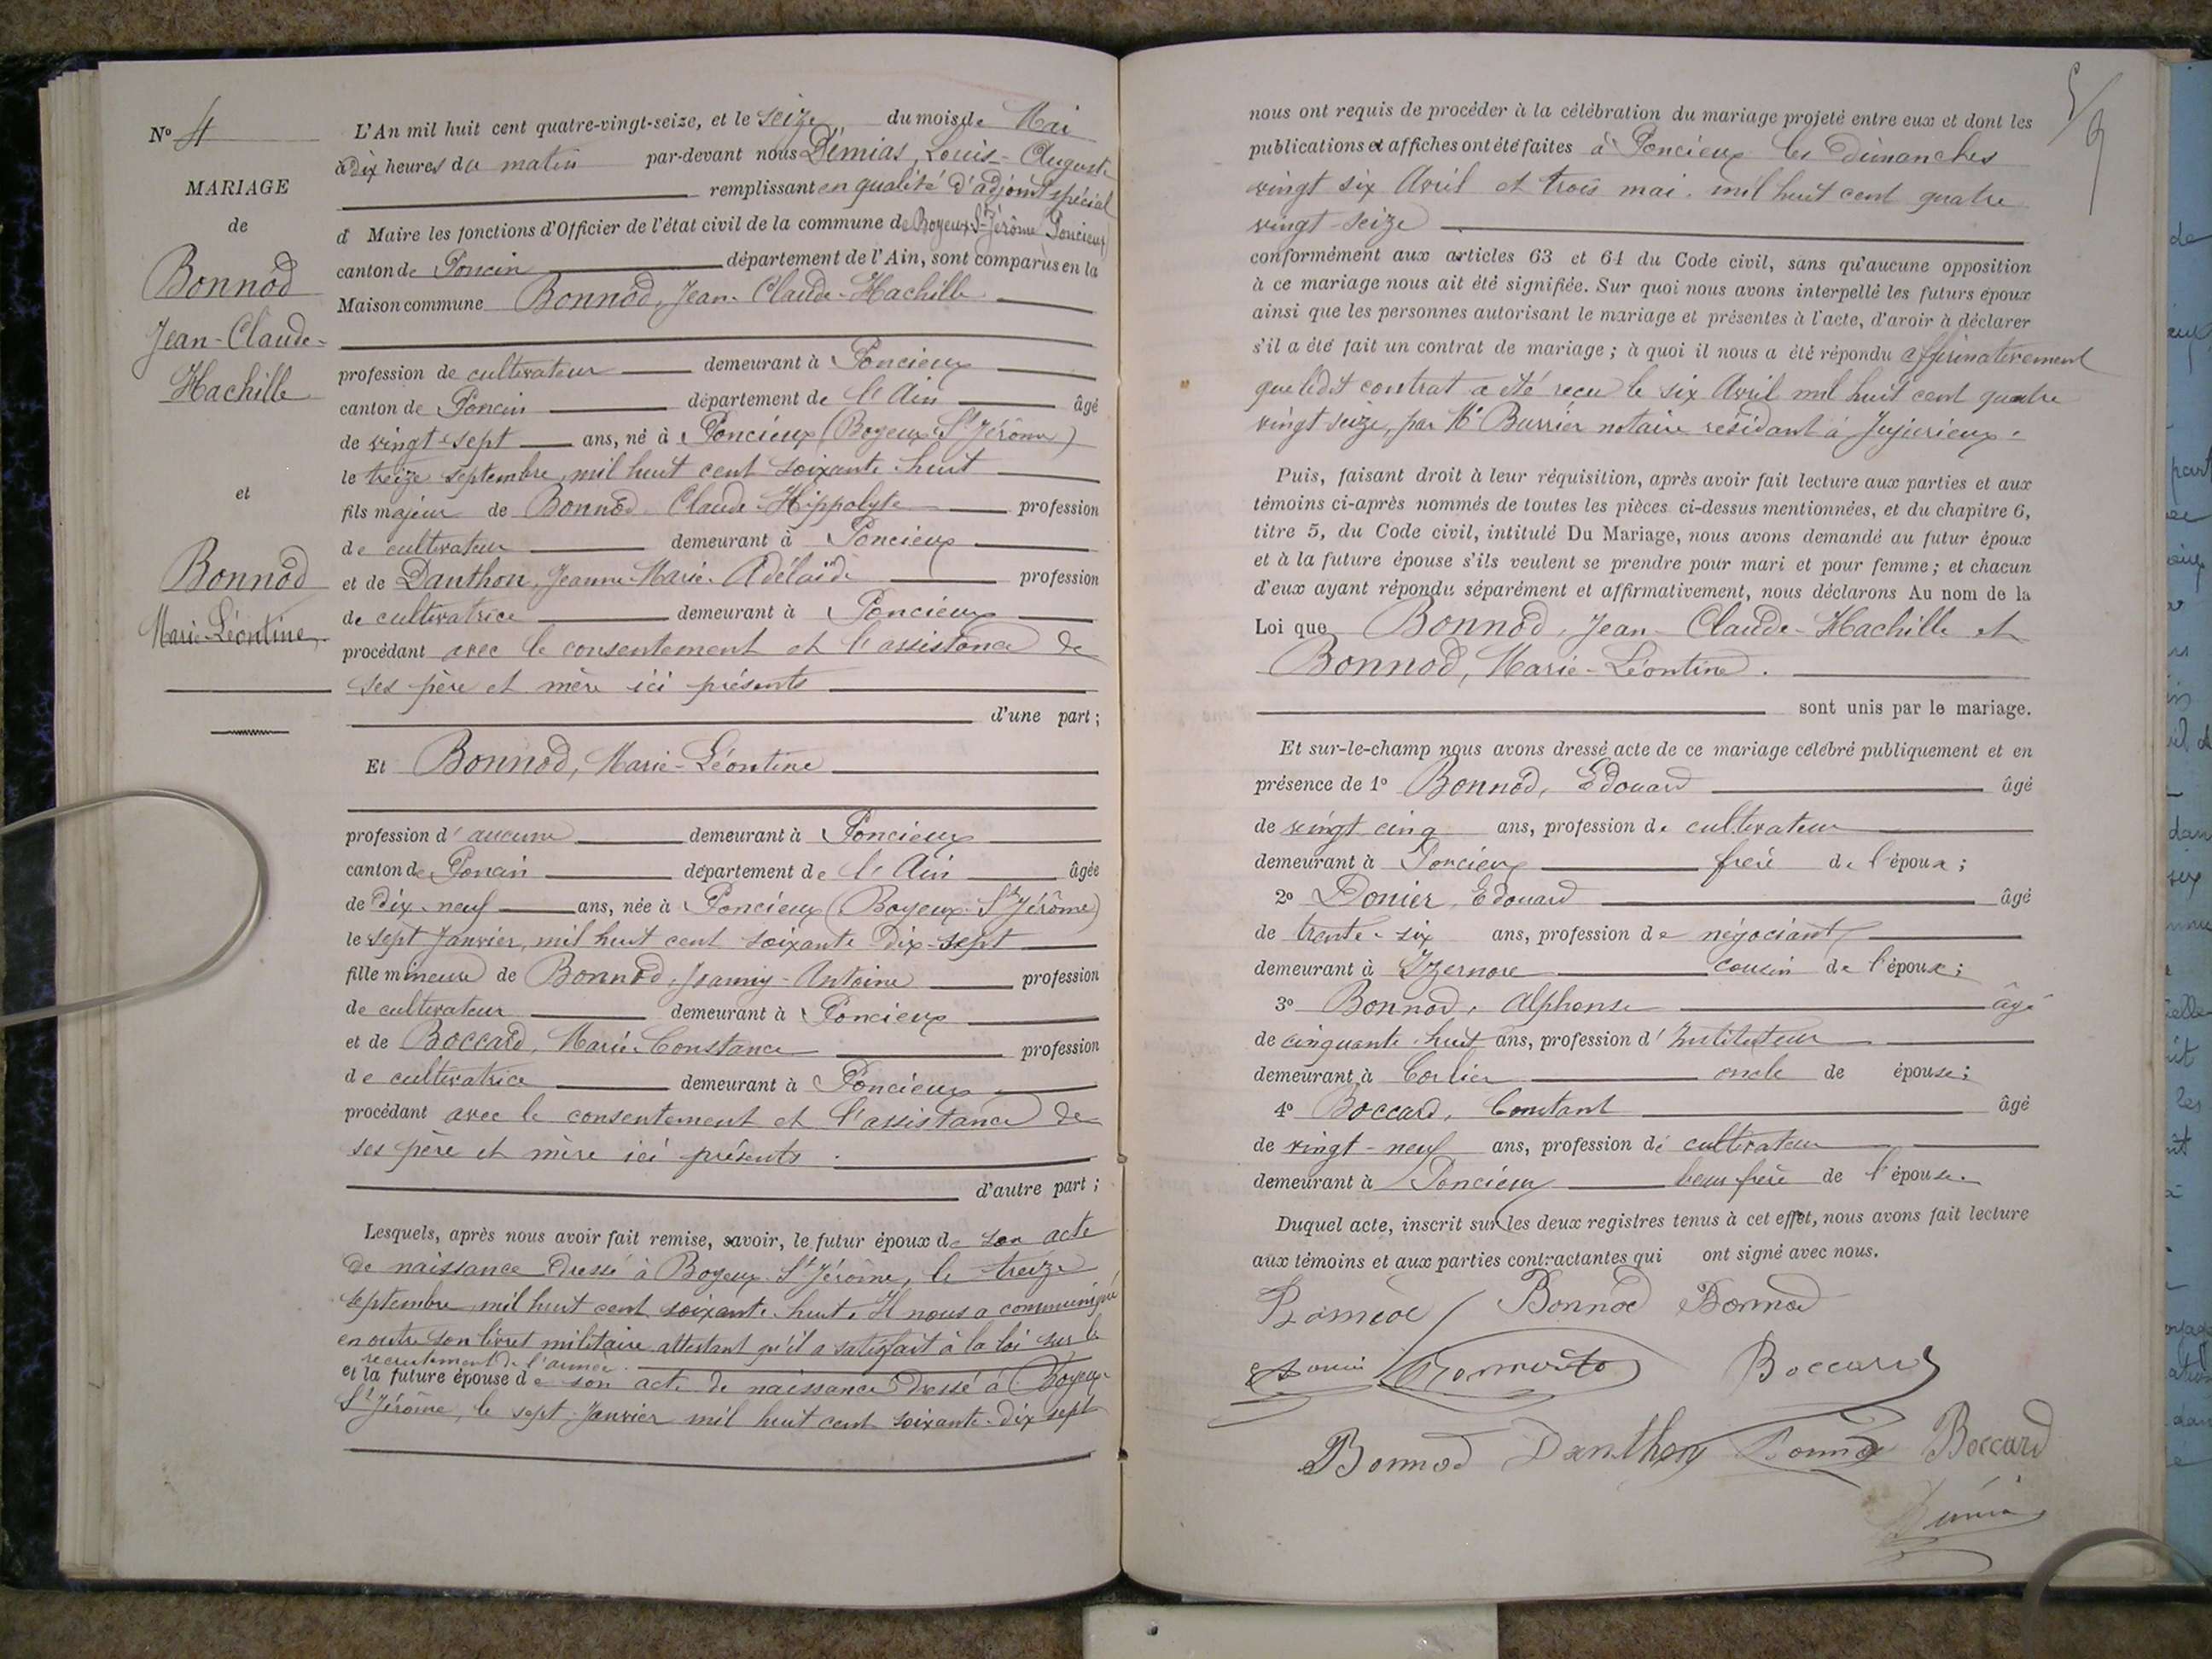 N° 4
MARIAGE
de
Bonnod
Jean-Claude-
Hachille
et
Bonnod
Marie-Léontine
L'An mil huit cent quatre-vingt-seize, et le seize du mois de Mai
à dix heures du matin par-devant nous Démias, Louis-Auguste
remplissant en qualité d'adjoint spécial
d Maire les fonctions d'Officier de l'état civil de la commune de Boyeux St-Jérôme (Poncieux)
canton de Poncin département de l'Ain, sont comparus en la
Maison commune Bonnod, Jean-Claude-Hachille
profession de cultivateur demeurant à Poncieux
canton de Poncin département de l'Ain âgé
de vingt-sept ans, né à Poncieux (Boyeux-St Jérôme)
le treize septembre, mil huit cent soixante-huit
fils majeur de Bonnod Claude-Hippolyte profession
de cultivateur demeurant à Poncieux
et de Danthon, Jeanne-Marie-Adélaïde profession
de cultivatrice demeurant à Poncieux
procédant avec le consentement et l'assistance de
ses père et mère ici présents
d'une part;
Et Bonnod, Marie-Léontine
profession d'aucune demeurant à Poncieux
canton de Poncin département de l'Ain âgée
de dix-neuf ans, née à Poncieux (Boyeux-St Jérôme)
le sept Janvier, mil huit cent soixante dix-sept
fille mineure de Bonnod, Joanny-Antoine profession
de cultivateur demeurant à Poncieux
et de Boccard, Marie-Constance profession
de cultivatrice demeurant à Poncieux
procédant avec le consentement et l'assistance de
ses père et mère ici présents.
d'autre part;
Lesquels, après nous avoir fait remise, savoir, le futur époux de son acte
de naissance dressé à Boyeux-St Jérôme, le treize
septembre mil huit cent soixante-huit. Il nous a communiqué
en outre son livret militaire attestant qu'il a satisfait à la loi sur le
recrutement de l'armée.
et la future épouse de son acte de naissance dressé à Boyeux
St Jérôme, le sept Janvier mil huit cent soixante-dix sept
nous ont requis de procéder à la célébration du mariage projeté entre eux et dont les
publications et affiches ont été faites à Poncieux les Dimanches
vingt six Avril et trois mai mil huit cent quatre
vingt-seize
conformément aux articles 63 et 64 du Code civil, sans qu'aucune opposition
à ce mariage nous ait été signifiée. Sur quoi nous avons interpellé les futurs époux
ainsi que les personnes autorisant le mariage et présentes à l'acte, d'avoir à déclarer
s'il a été fait un contrat de mariage; à quoi il nous a été répondu affirmativement
que ledit contrat a été reçu le six Avril mil huit cent quatre
vingt-seize, par Me Burrier notaire résidant à Jujurieux.
Puis, faisant droit à leur réquisition, après avoir fait lecture aux parties et aux
témoins ci-après nommés de toutes les pièces ci-dessus mentionnées, et du chapitre 6,
titre 5, du Code civil, intitulé Du Mariage, nous avons demandé au futur époux
et à la future épouse s'ils veulent se prendre pour mari et pour femme; et chacun
d'eux ayant répondu séparément et affirmativement, nous déclarons Au nom de la
Loi que Bonnod, Jean-Claude-Hachille et
Bonnod, Marie-Léontine.
sont unis par le mariage.
Et sur-le-champ nous avons dressé acte de ce mariage célébré publiquement et en
présence de 1° Bonnod, Edouard âgé
de vingt cinq ans, profession de cultivateur
demeurant à Poncieux frère de l'époux;
2° Donier, Edouard âgé
de trente-six ans, profession de négociant
demeurant à Izernore cousin de l'époux;
3° Bonnod, Alphonse âgé
de cinquante-huit ans, profession d'Instituteur
demeurant à Corlier oncle de épouse;
4° Boccard, Constant âgé
de vingt-neuf ans, profession de cultivateur
demeurant à Poncieux beau frère de l'épouse.
Duquel acte, inscrit sur les deux registres tenus à cet effet, nous avons fait lecture
aux témoins et aux parties contractantes qui ont signé avec nous.
Bonnod Bonnod
Boccard
Bonnod Danthon Bonnod Boccard
Démias